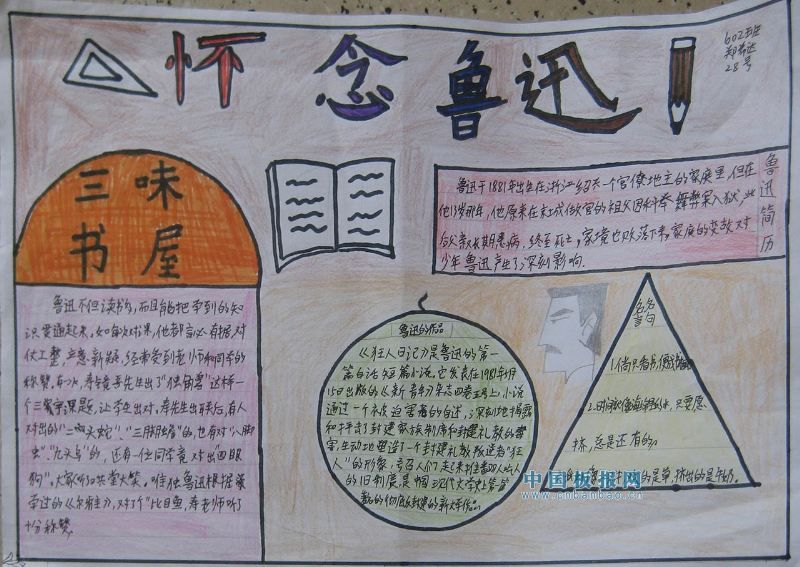 怀念鲁迅
602班
28号
三味
书屋
鲁迅不但读书多,而且能把学到的知
识贯通起来,如每次对课,他都
仗工整,立意新颖,经常受到老师和同学的
称赞。有一次,寿老先生出了"独角兽"这样一
个三字课题,让学生出对,寿先生出联后,有人
对出的"二头蛇"、"三脚蟾"的,也有对"八脚
虫"、"九头鸟"的,还有一位同学竟对出四眼
狗",大家听了哄堂大笑。唯独鲁迅根据
学过的《尔雅》,对了个"比目鱼,寿老师听了
十分称赞。
鲁迅简历
鲁迅于1881年出生在浙江绍兴一个官僚地主的家庭里,但在
他13岁那年,他原来在京城做官的祖父因科举舞弊案入狱,此
后父亲长期患病,终至死亡,家境也败落下来,家庭的变故对
少年鲁迅产生了深刻影响.
鲁迅的作品
《狂人日记》是鲁迅的第一
篇白话短篇小说,它发表在
15日出版的《新青年》杂志四卷五号上,小说
通过一个被迫害者的自述,深刻地揭露
和抨击了封建家族制度和封建礼教的毒
害,生动地塑造了一个封建礼教叛逆者"狂
人"的形象,号召人们起来推翻吃人
的旧制度,是中国现代文学史上第一篇
的彻底反封建的新文学作品。
名言
1.倘只看书,便
2.时间就像海绵里的水,只要愿
挤,总是还有的。
的是草,挤出的是牛奶。
中国板报网
www.cnbanbao.cn